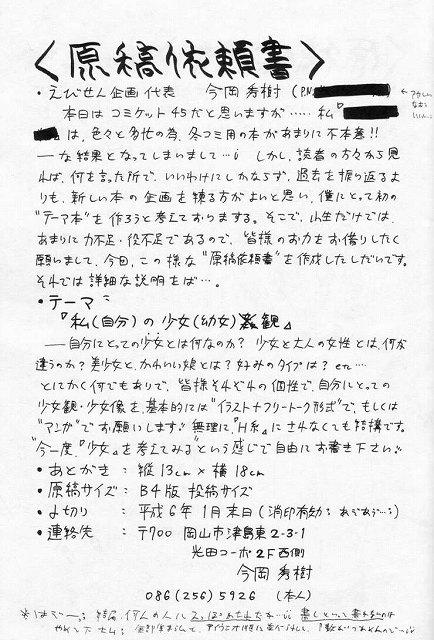 〈原稿依頼書〉
・えびせん企画 代表　今岡 秀樹 (P.N.
本日はコミケット45だと思いますが……私『
は、色々と多忙の為、冬コミ用の本があまりに不本意!!
―な結果となってしまいまして…。しかし、読者の方々から見
れば、何を言った所で、いいわけにしかならず、過去を振り返るよ
りも、新しい本の企画を練る方がよいと思い、僕にとって初の
"テーマ本"を作ろうと考えております。そこで、小生だけでは、
あまりに力不足・役不足であるので、皆様のお力をお借りしたく
願いまして、今回、この様な"原稿依頼書"を作成したしだいです。
それでは詳細な説明をば…。
・テーマ
『私(自分)の少女(幼女)観』
――自分にとっての少女とは何なのか? 少女と大人の女性とは、何が
違うのか? 美少女と、かわいい娘とは? 好みのタイプは? etc…
とにかく何でもありで、皆様それぞれの個性で、自分にとっての
少女観・少女像を、基本的には"イラスト+フリートーク形式"で、もしくは
"マンガ"でお願いします。無理に『H系』にさなくても結構です。
"今一度、『少女』を考えてみる"という感じで自由にお書き下さい。
・あとがき : 縦13cm×横18cm
・原稿サイズ : B4版 投稿サイズ
・〆切り : 平成6年1月末日(消印有効:
・連絡先 : 〒700 岡山市津島東2-3-1
光田コーポ2F西側
今岡 秀樹
086(256)5926 (本人)